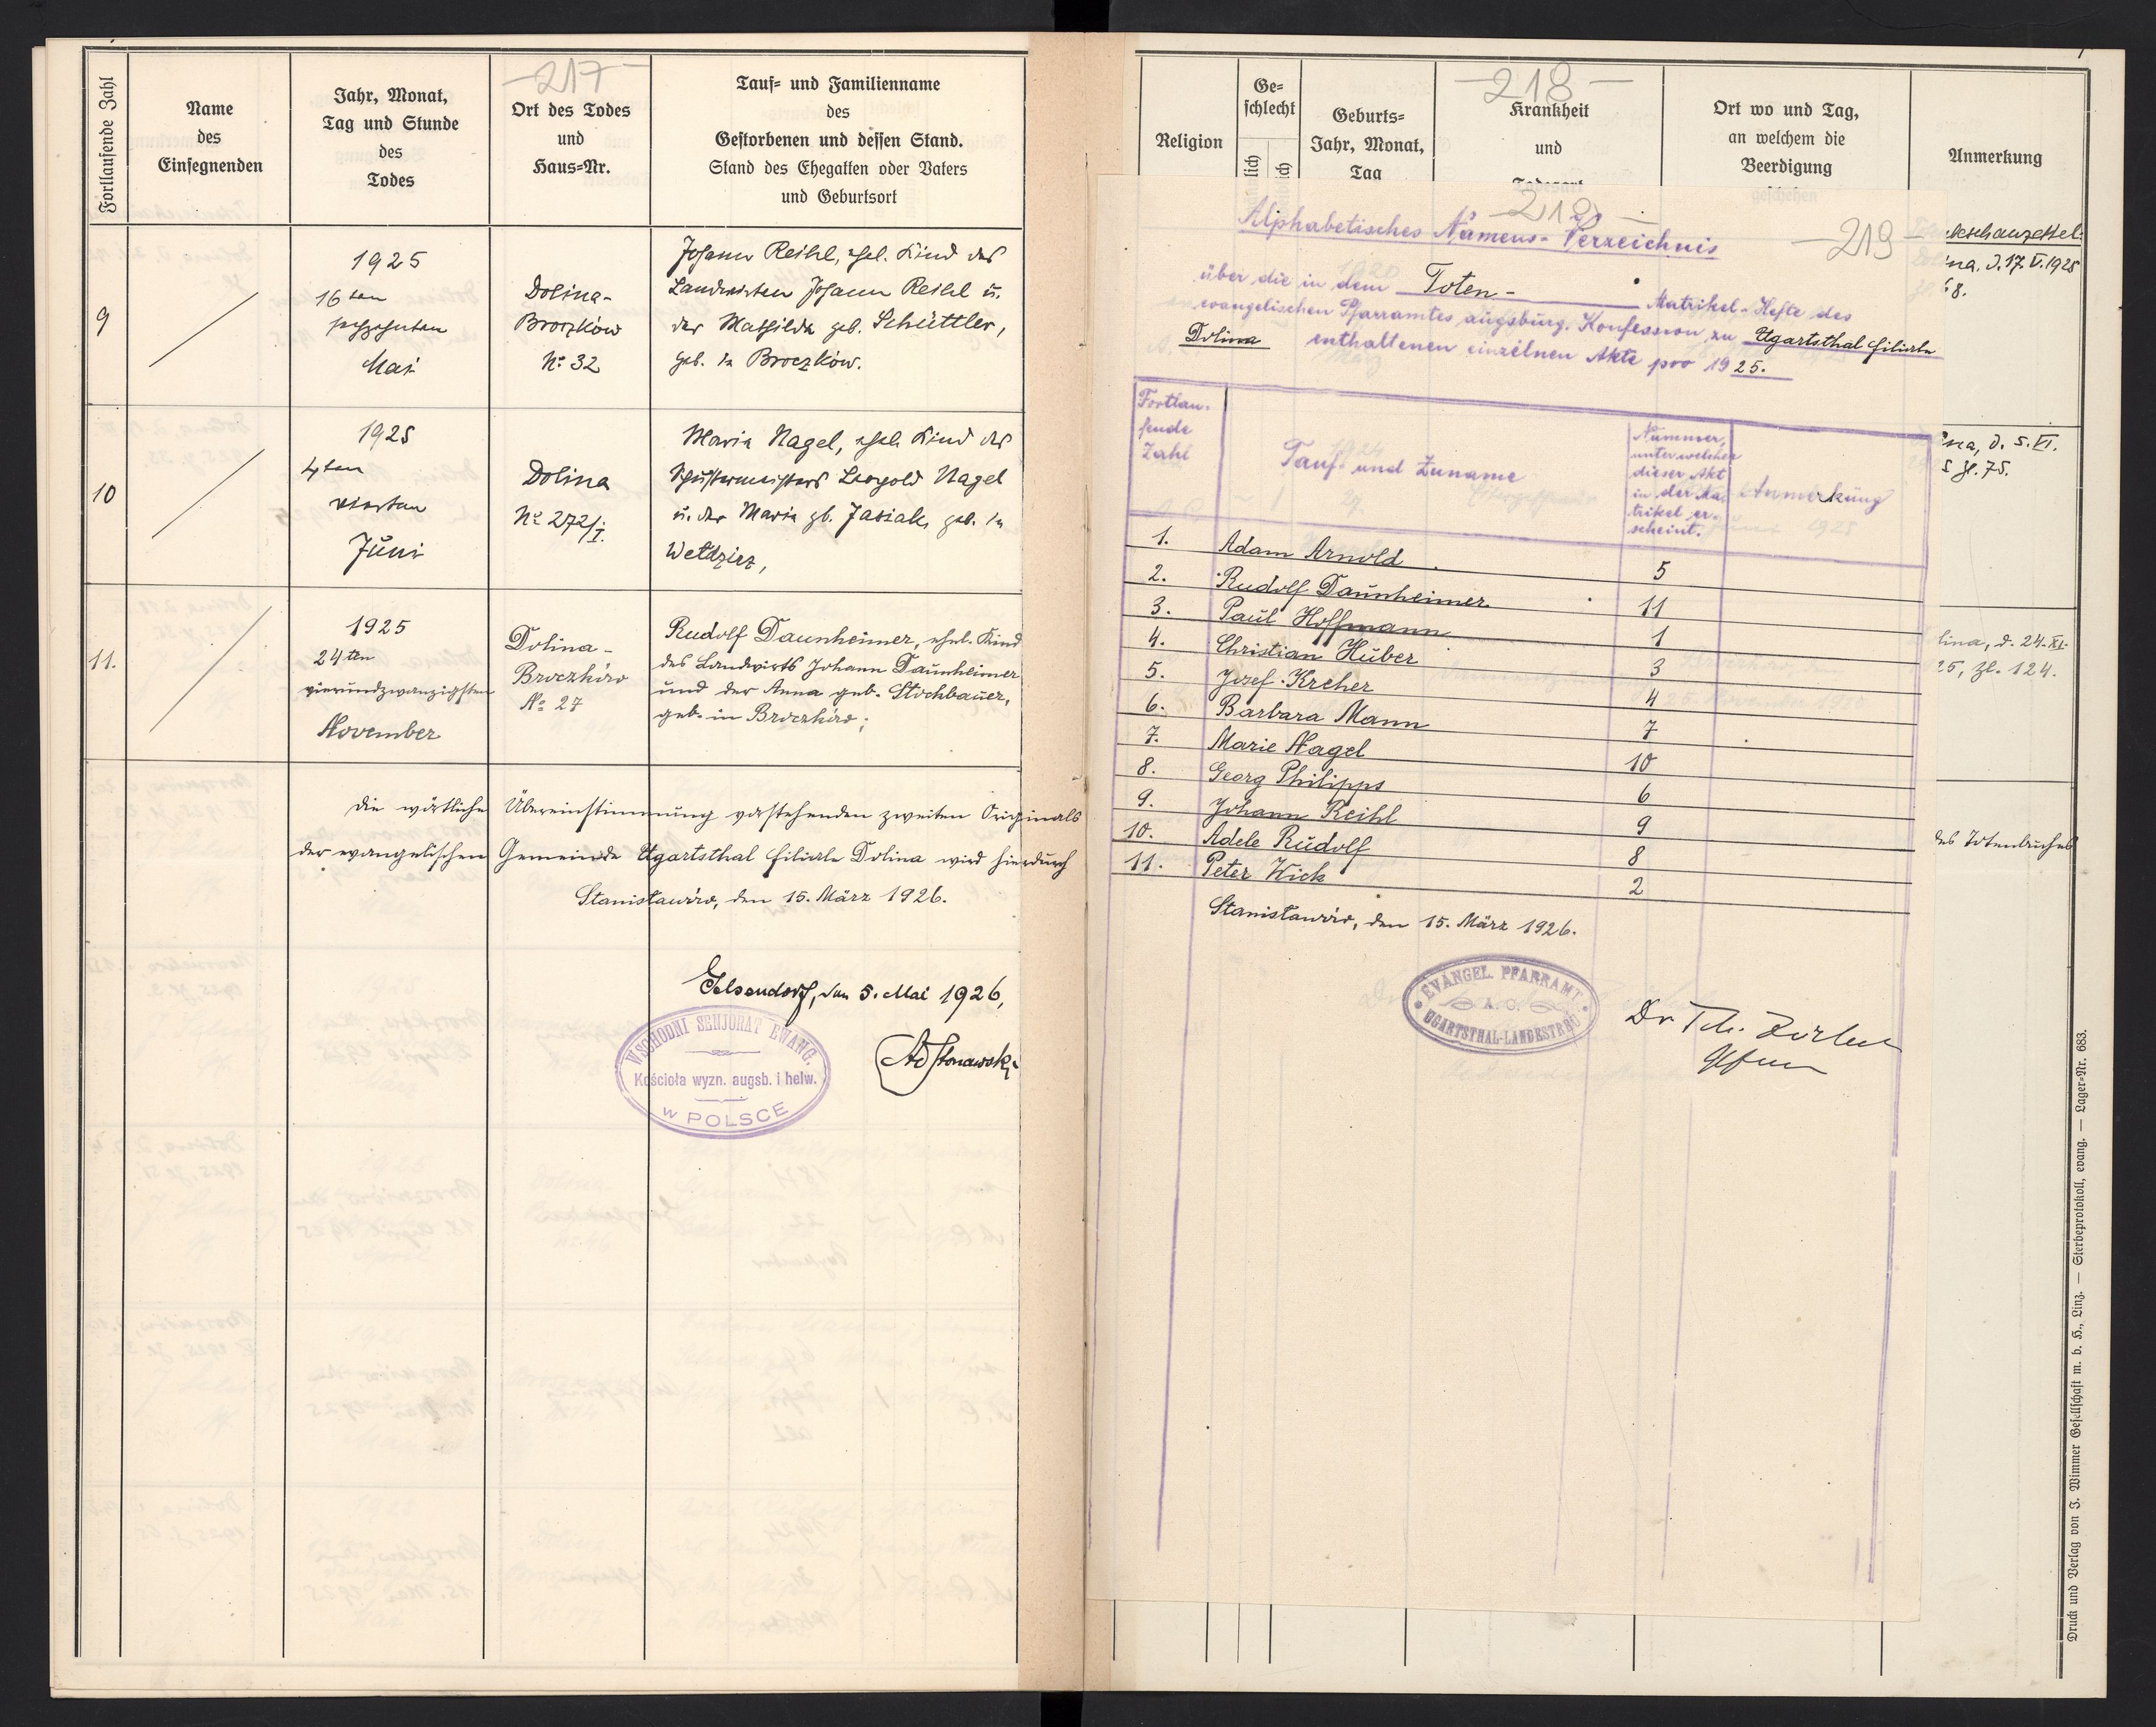 -217-
Fortlaufende Zahl
Name
des
Einsegnenden
Jahr, Monat,
Tag und Stunde
des
Todes
Ort des Todes
und
Haus=Nr.
Tauf= und Familienname
des
Gestorbenen und dessen Stand.
Stand des Ehegatten oder Vaters
und Geburtsort
9
1925
16ten
sechzehnten
Mai
Dolina-
Broczków
No. 32
Johann Reihl, ehel. Kind des
Landwirten Johann Reihl u.
der Mathilda geb. Schüttler,
geb. in Broczków.
10
1925
4ten
vierten
Juni
Dolina
No 272/I.
Maria Nagel, ehel. Kind des
Schustermeisters Leopold Nagel
u. der Maria gb. Jasiak, geb. in
Wełdzirz,
11.
1925
24ten
vierundzwanzigsten
November
Dolina-
Broczków
No 27
Rudolf Daunheimer, ehel. Kind
des Landwirts Johann Daunheimer
und der Anna geb. Stochbauer,
geb. in Broczków;
Die wörtliche Übereinstimmung vorstehenden zweiten Originals
der evangelischen Gemeinde Ugartsthal Filiale Dolina wird hierdurch
Stanisławów, den 15. März 1926.
Gelsendorf, den 5. Mai 1926,
WSCHODNI SENJORAT EWANG.
Kościoła wyzn. augsb. i helw.
w POLSCE
-218-
Religion
Ge=
schlecht
Geburts=
Jahr, Monat,
Tag
Krankheit
und
Ort wo und Tag,
an welchem die
Beerdigung
geschehen
Anmerkung
-219-
Alphabetisches Namens-Verzeichnis
über die in dem Toten- Matrikel-Hefte des
evangelischen Pfarramtes augsburg. Konfession zu Ugartsthal Filiale
Dolina enthaltenen einzelnen Akte pro 1925.
Fortlau-
fende
Zahl
Tauf- und Zuname
Nummer,
unter welcher
dieser Akt
in der Ma-
trikel er-
scheint.
Anmerkung
1. Adam Arnold 5
2. Rudolf Daunheimer 11
3. Paul Hoffmann 1
4. Christian Huber 3
5. Josef Kreher 4
6. Barbara Mann 7
7. Marie Nagel 10
8. Georg Philipps 6
9. Johann Reihl 9
10. Adele Rudolf 8
11. Peter Wick 2
Stanisławów, den 15. März 1926.
EVANGEL. PFARRAMT
A. C.
UGARTSTHAL-LANDESTREU
ina, d. 17. V. 1925
68.
ina, d. 5. VI.
5 Zl. 75.
lina, d. 24. XI.
25, Zl. 124.
des Totenbuches
Druck und Verlag von J. Wimmer Gesellschaft m. b. H., Linz. — Sterbeprotokoll, evang. — Lager=Nr. 683.